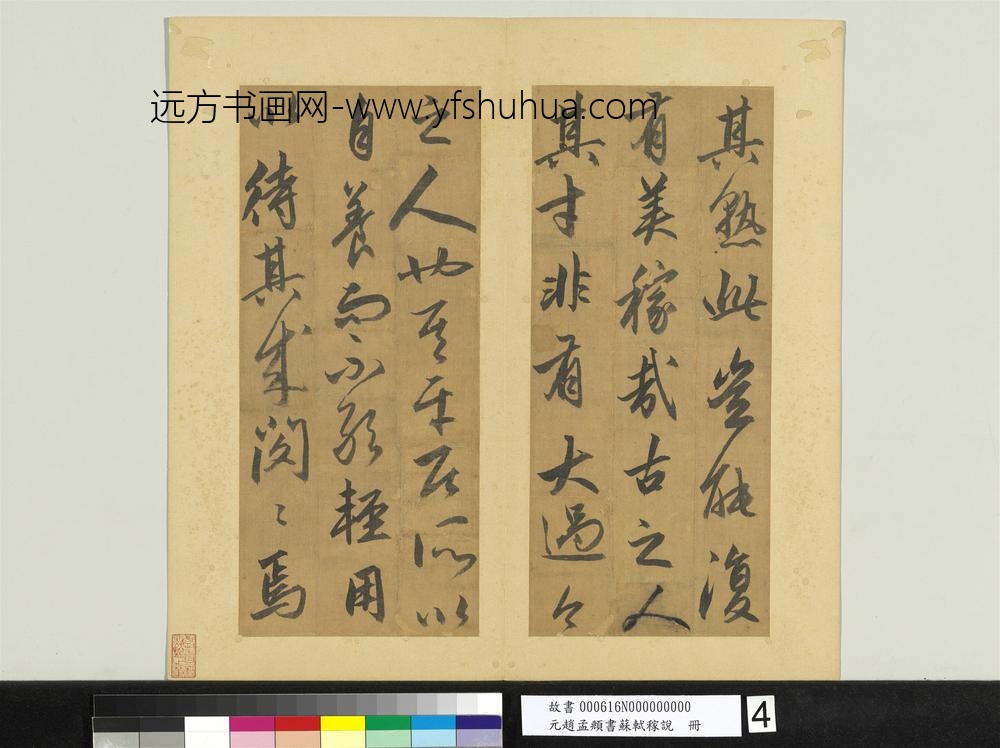 远方书画网-www.yfshuhua.com
其熟此豈能復
有美稼哉古之人
其才非有大過今
之人也其平居所以
自養而不敢輕用
以待其成閔〻焉
故書 000616N000000000
元趙孟頫書蘇軾稼說 冊
4